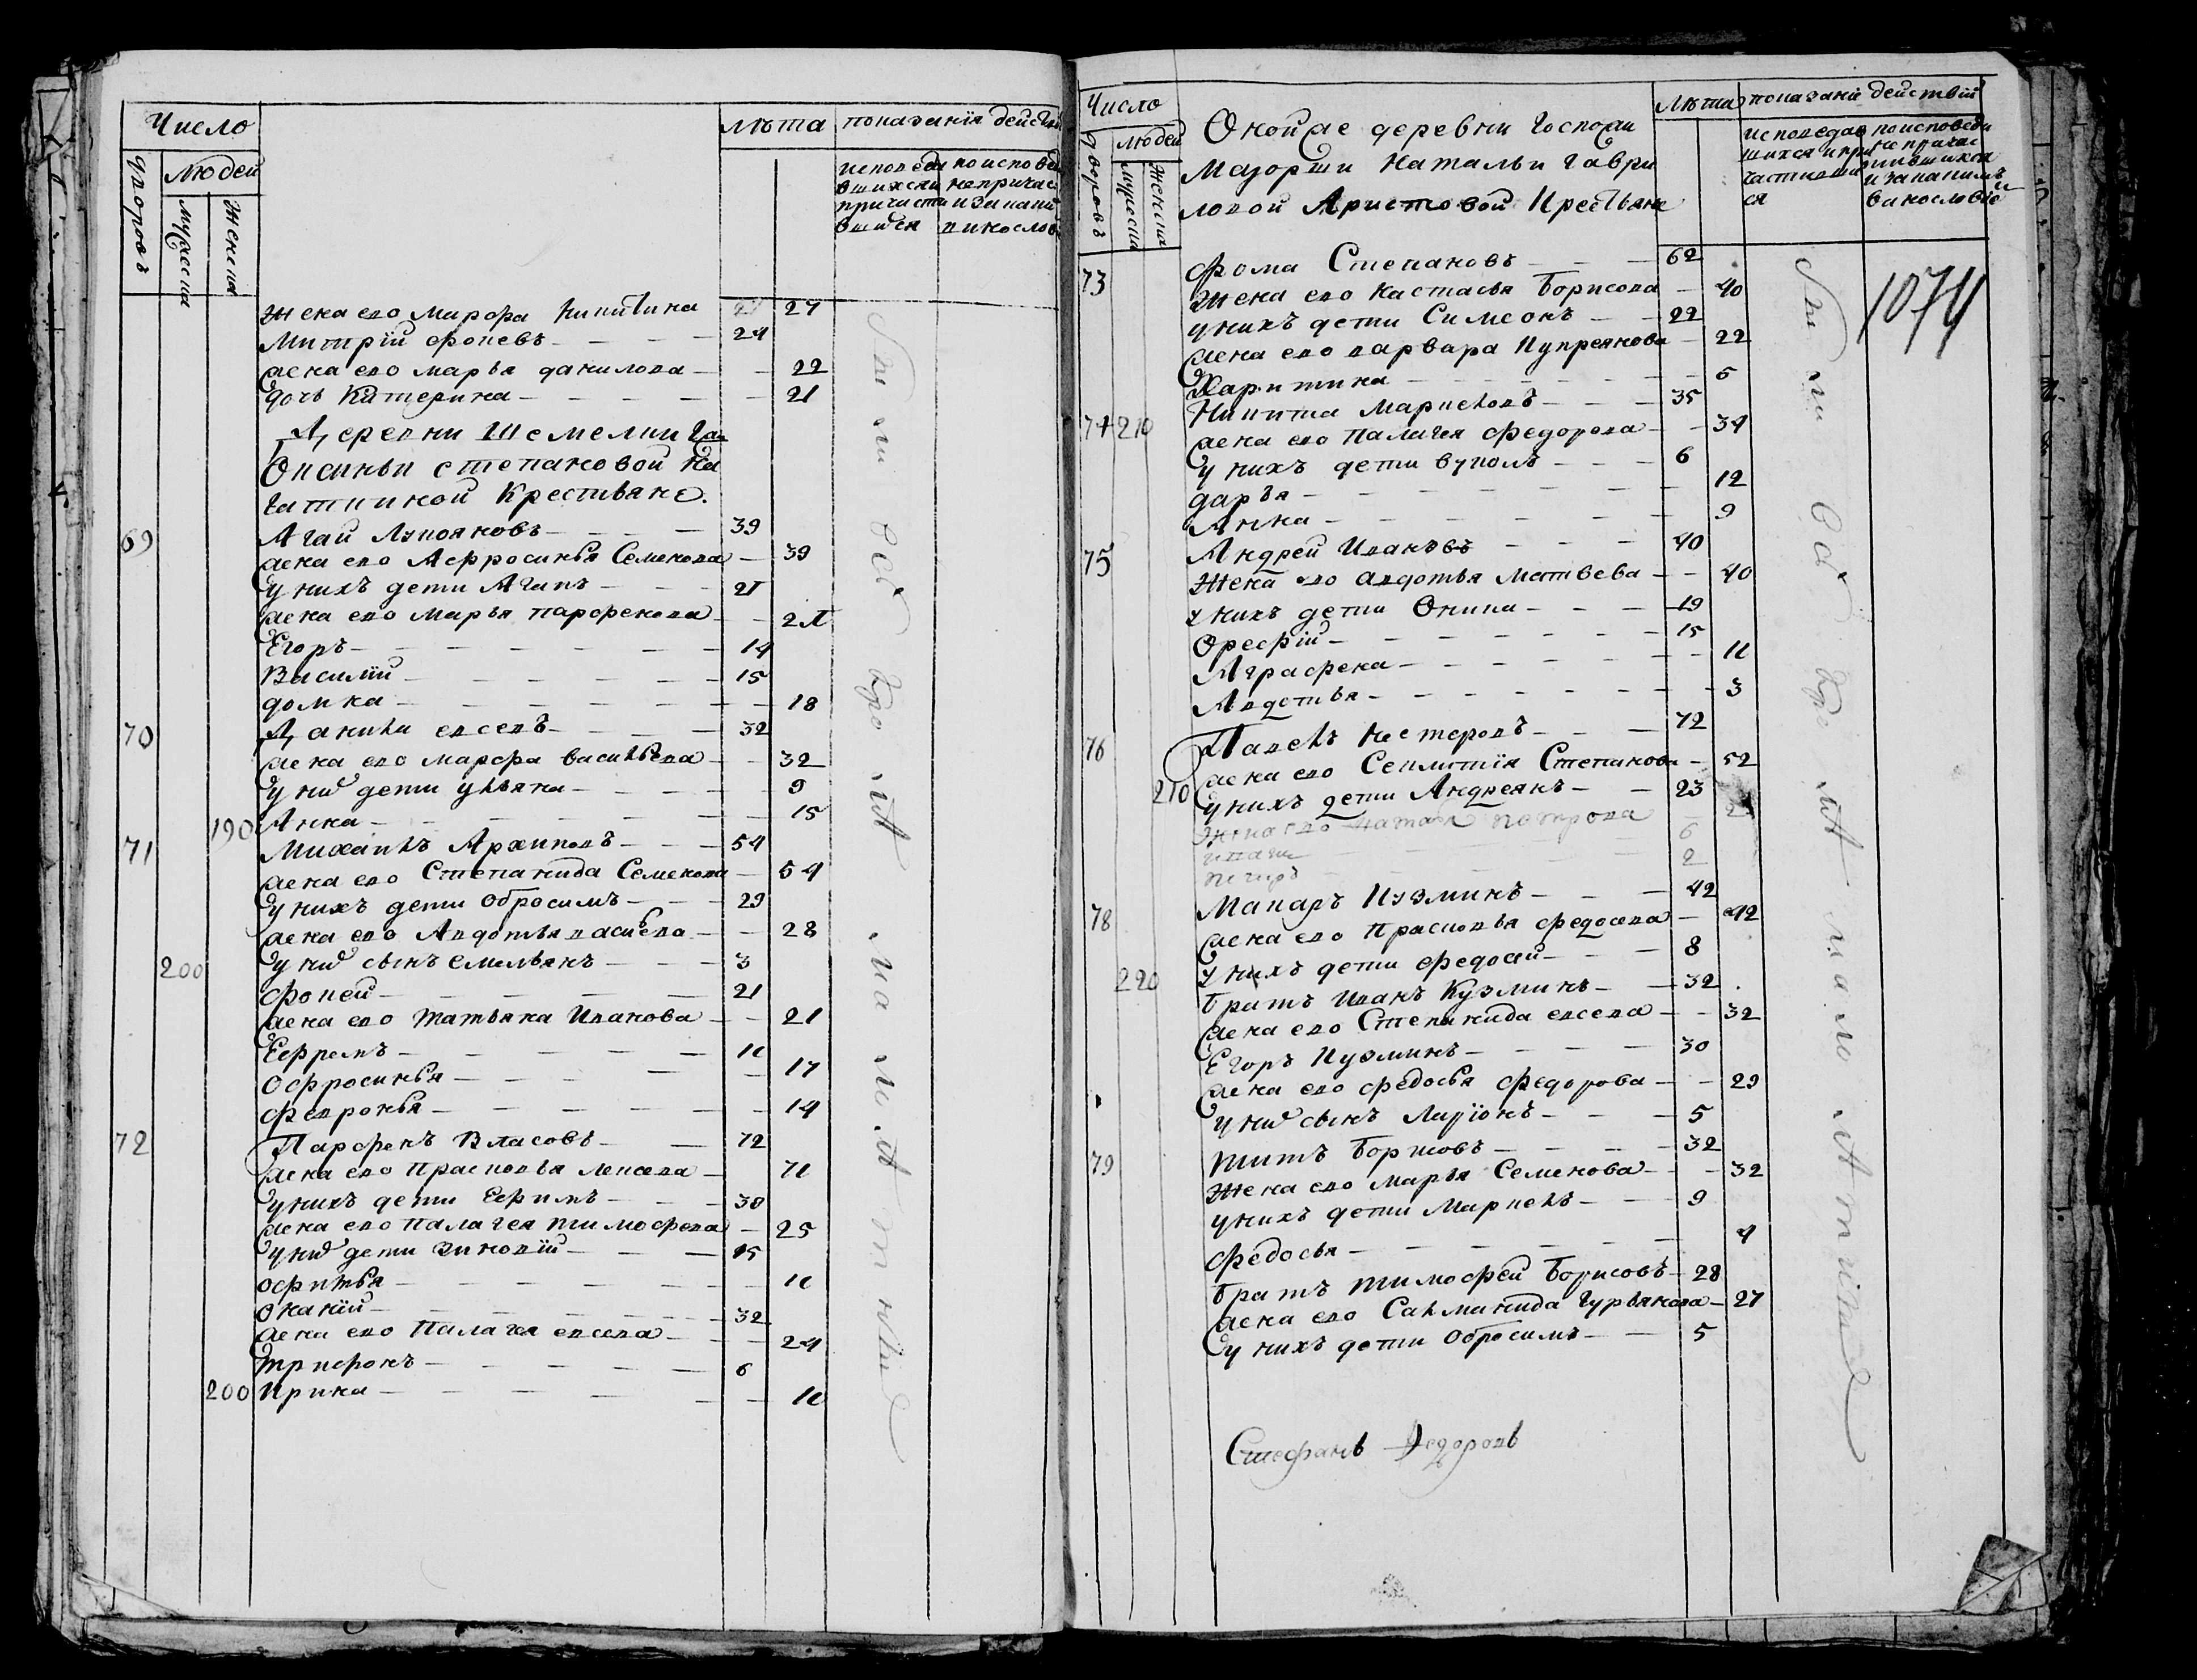 Число
Людей
дворовъ
мужеска
женска
лѣта
показанія дейст
исповеда
вшихся и
причасти
вшихся
по испове
непричас
и за каки
винослов
Жена ево Марфа Никитина 27
Митрій Фокевъ 24
жена ево Марья Данилова 22
дочь Катерина 21
Деревни Шемелки Га
Оксиньи Степановой Ка
чаткиной Крестьяне.
69 Агай Лукояновъ 39
жена ево Афросинья Семенова 39
у нихъ дети Агапъ 21
жена ево Марья Парфенова
Егоръ 14
Василий 15
домна 18
70 Данила евсевъ 32
жена ево марфа васильева 32
у них дети ульяна 9
190 Анна 15
71 Михаилъ Архиповъ 54
жена ево Степанида Семенова 54
у нихъ дети Обросимъ 29
жена ево Авдотья васиева 28
200 у них сынъ емельянъ 3
Фокей 21
жена ево Татьяна Иванова 21
Ефремъ 11
Офросинья 17
Февронья 14
72 Парфенъ Власовъ 72
жена ево Прасковья Лексева 71
у нихъ дети Ефимъ 30
жена ево Палагея тимофева 25
у них дети Зиновій 15
Офимья 11
Онаній 32
жена ево Палагея евсева 24
Трифонъ 6
200 Ирина 11
Число
Людей
дворовъ
мужеска
женска
Оной же деревни Госпожи
Маіорши Натальи Гаври
ловой Аристовой Крестьяне
Лѣта
показаніе действій
исповедав
шихся и при
частивши
ся
по исповеди
непричас
тившихся
и за какимъ
винословіе
1074
73 Фома Степановъ 62
Жена ево Настасья Борисова 40
у нихъ дети Симеонъ 22
жена ево варвара Купреянова 22
Харитина 5
74 210 Никита Маркеловъ 35
жена ево Палагея Федорова 34
у нихъ дети вуколъ 6
дарья 12
Анна 9
75 Андрей Ивановъ 40
Жена ево авдотья Матвева 40
у нихъ дети Оника 19
Орефій 15
Аграфена 11
Авдотья 3
76 Павелъ Нестеровъ 72
жена ево Секлитія Степанова 52
210 у нихъ дети Андреянъ 23
Жена ево Наталя Петрова
6
2
78 Макаръ Кузминъ 42
жена ево Прасковья федосева 42
у нихъ дети федосей 8
220 братъ Иванъ Кузминъ 32
жена ево Степанида евсева 32
Егоръ Кузминъ 30
жена ево федосья Федорова 29
у них сынъ Ларіонъ 5
79 Титъ Борисовъ 32
Жена ево Марья Семенова 32
у нихъ дети Маркелъ 9
федосья 4
братъ Тимофей Борисовъ 28
жена ево Салманида Гурьянова 27
у нихъ дети Обросимъ 5
Стефанъ Федоровъ